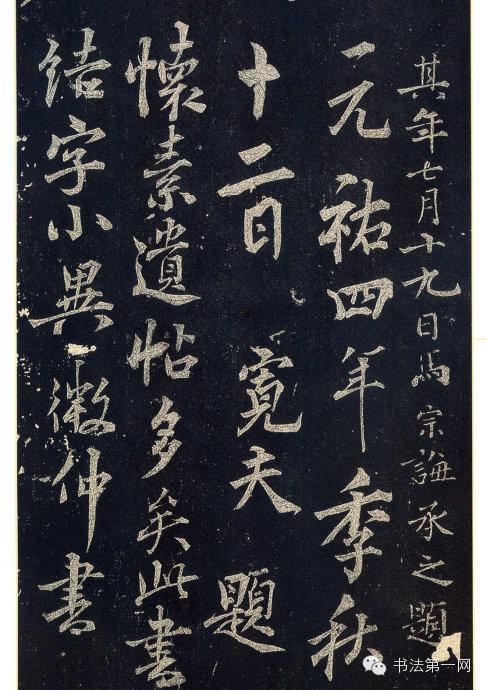 其年七月十九日馬宗誨承之題
元祐四年季秋
十二日 寬夫 題
懷素遺帖多矣此書
結字小異微仲書
书法第一网